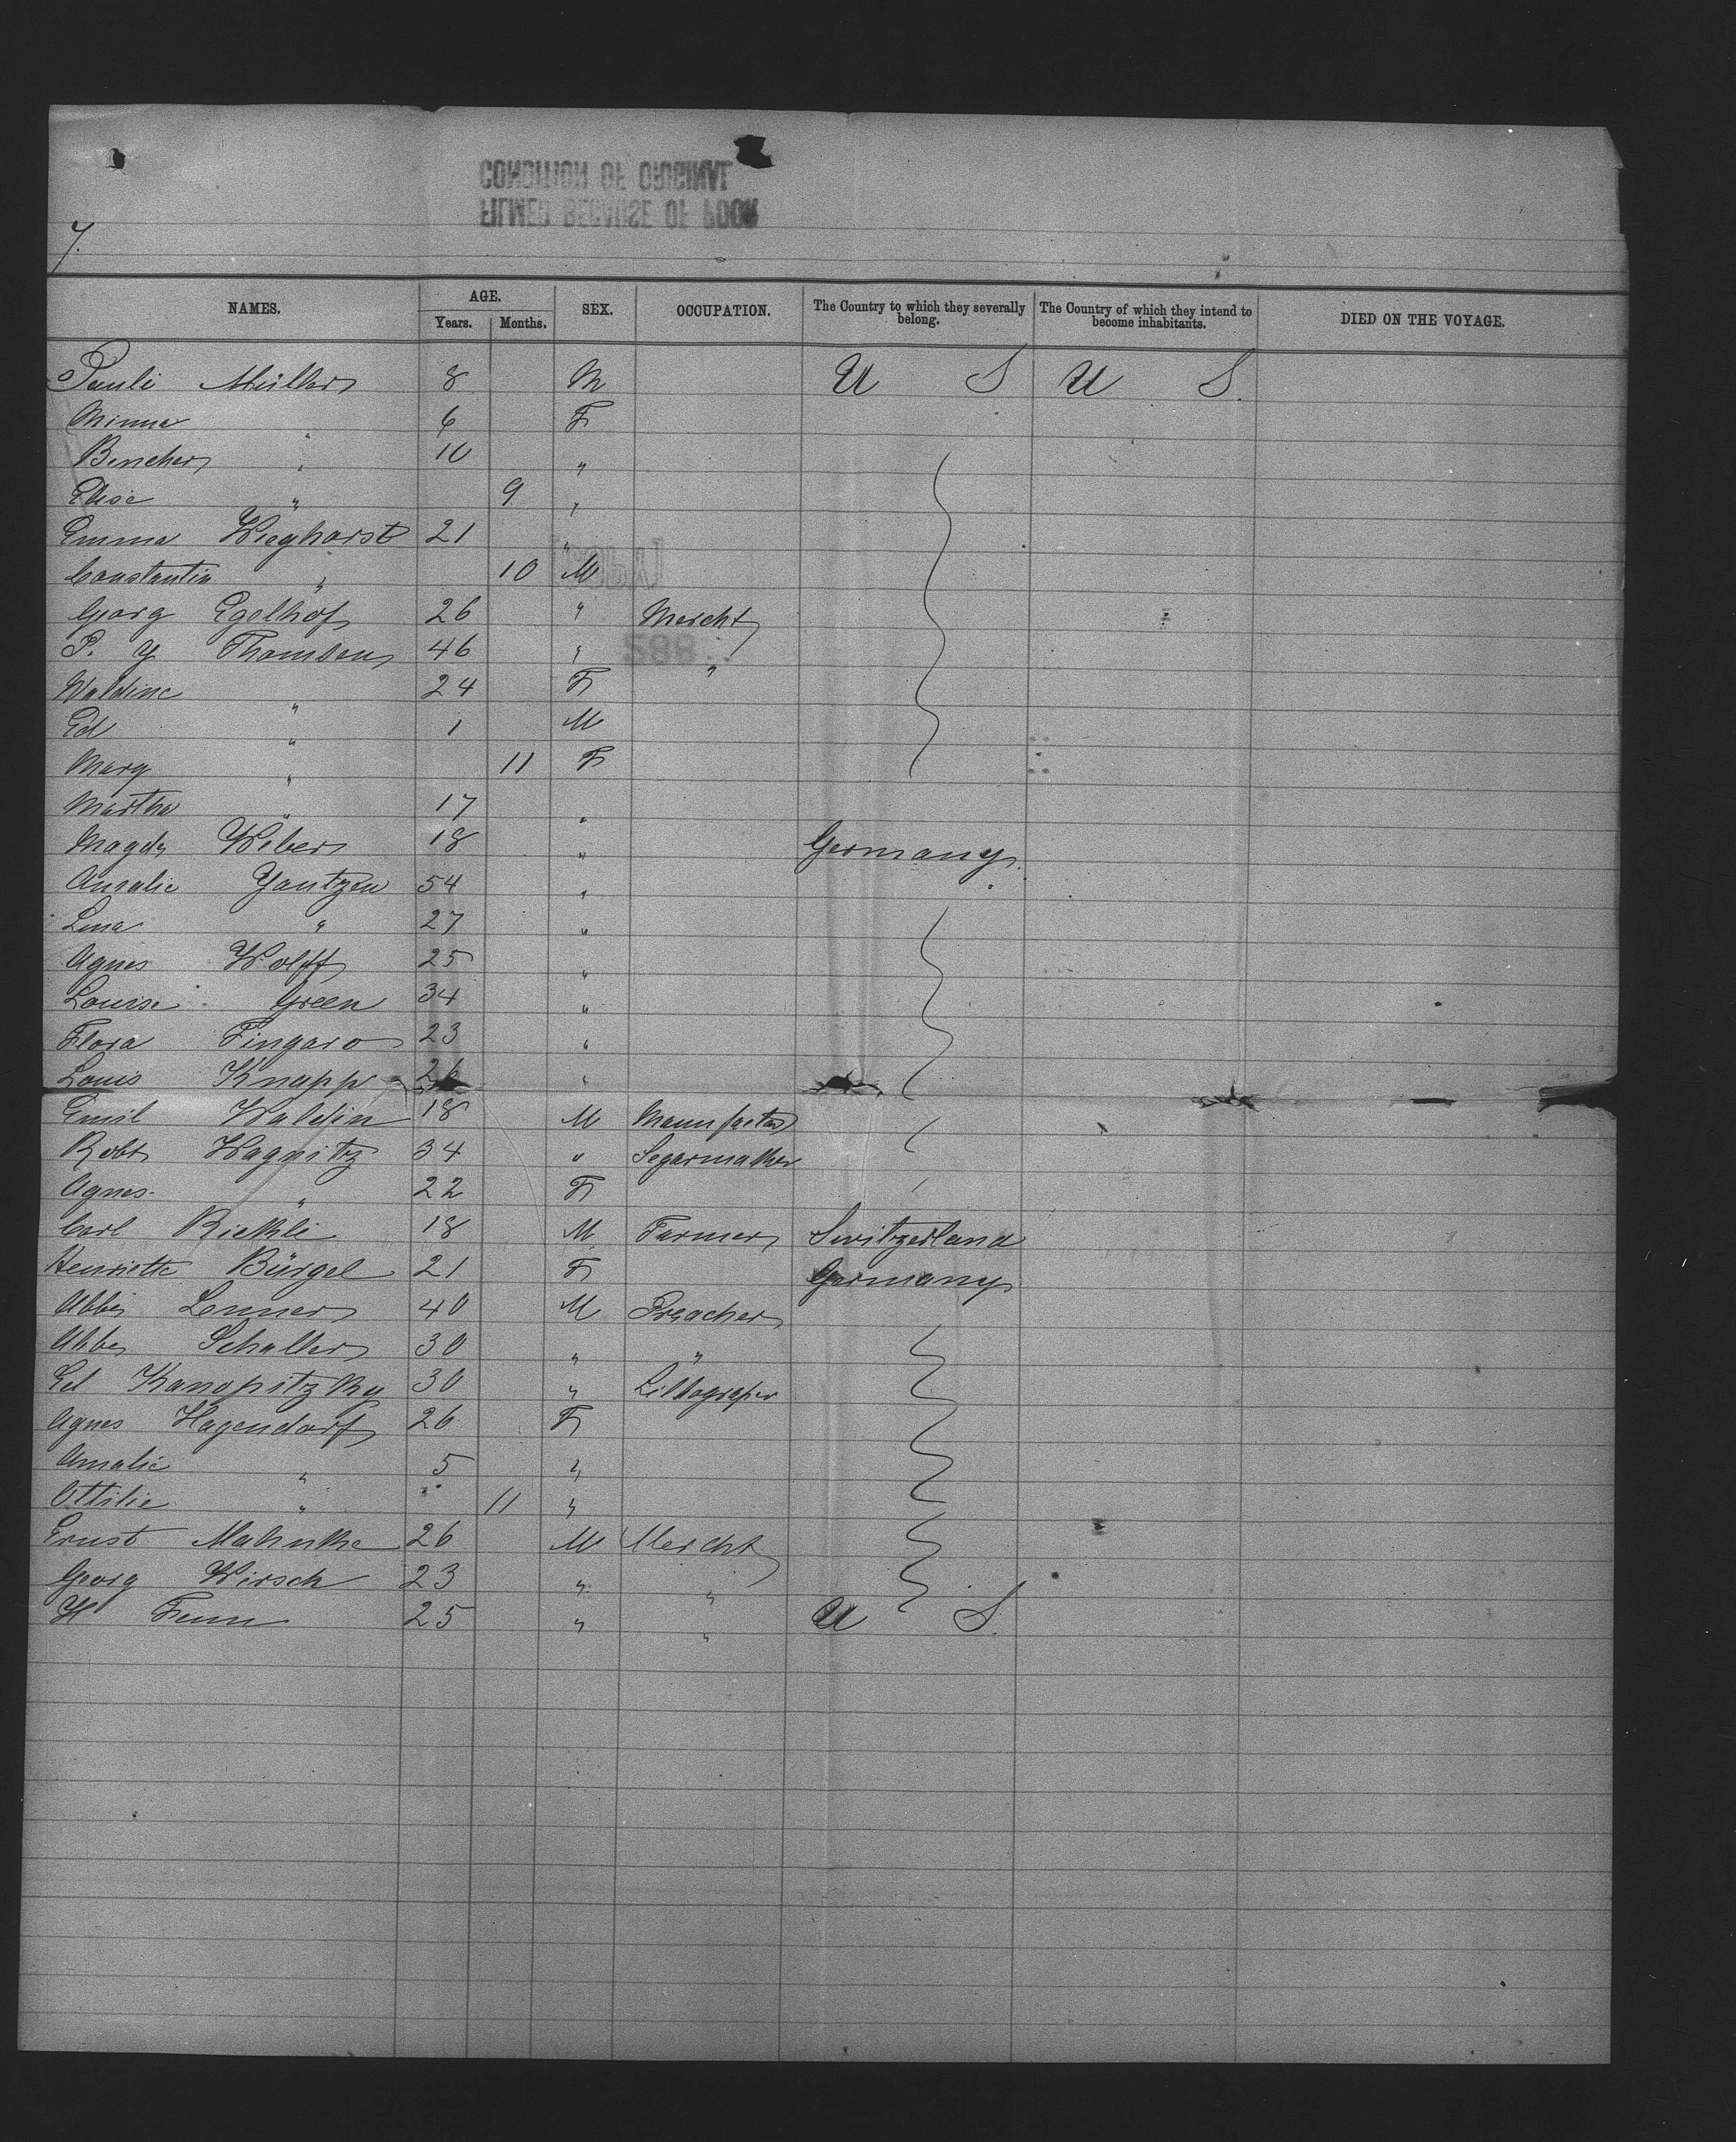 CONDITION OF ORIGINAL
FILMED BECAUSE OF POOR
7.
NAMES. AGE. SEX. OCCUPATION. The Country to which they severally belong. The Country of which they intend to become inhabitants. DIED ON THE VOYAGE.
Years. Months.
Pauli Müller 8 M U S U S.
Minna " 6 F
Bencher " 10 "
Elise " 9 "
Emma Wieghorst 21 "
Constantin " 10 M
Georg Egelhof 26 " Mercht
P. Y Thomsen 46 " "
Waldine " 24 F
Ed " 1 M
Marg " 11 F
Martha " 17 "
Magda Weber 18 " Germany.
Amalie Jantzen 54 "
Lina " 27 "
Agnes Wolff 25 "
Louise Green 34 "
Flora Fingaro 23 "
Louis Knapp 26 "
Emil Waldin 18 M Manufactur
Robt Hagnitz 34 " Segarmaker
Agnes " 22 F
Carl Riekli 18 M Farmer Switzerland
Henriette Bürgel 21 F Germany
Abbé Lenner 40 M Preacher
Abbe Schaller 30 " "
Ed Kanopitzky 30 " Lithograper
Agnes Hagendorf 26 F
Amalie " 5 "
Ottilie " 11 "
Ernst Mahnke 26 M Mercht
Georg Wirsch 23 " "
H Fenn 25 " " U S.